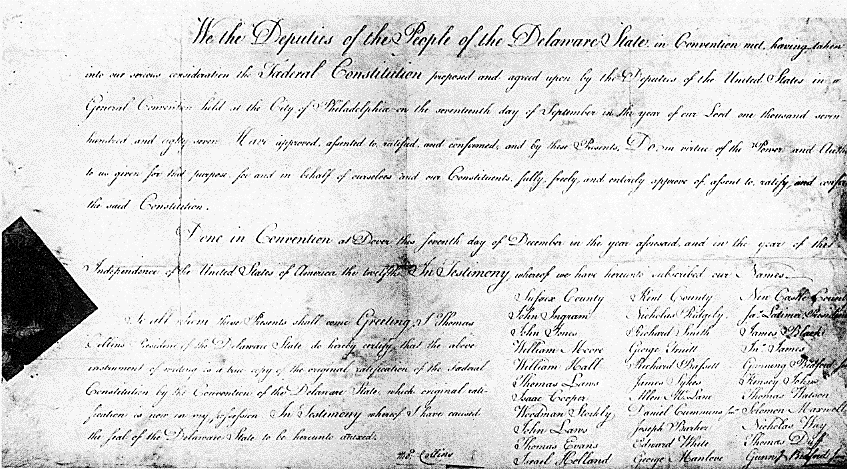 We the Deputies of the People of the Delaware State, in Convention met, having taken
into our serious consideration the Fœderal Constitution proposed and agreed upon by the Deputies of the United States in a
General Convention held at the City of Philadelphia on the seventeenth day of September in the year of our Lord one thousand seven
hundred and eighty seven, Have approved, assented to, ratified, and confirmed, and by these Presents, Do, in virtue of the Power and
to us given for that purpose, for and in behalf of ourselves and our Constituents, fully, freely, and entirely approve of, assent to, ratify, and confirm
the said Constitution.
Done in Convention at Dover this seventh day of December in the year aforesaid, and in the year of the
Independence of the United States of America the twelfth. In Testimony whereof we have hereunto subscribed our Names.
To all whom these Presents shall come Greeting, I Thomas
Collins President of the Delaware State do hereby certify, that the above
instrument of writing is a true copy of the original ratification of the Fœderal
Constitution by the Convention of the Delaware State, which original rati-
fication is now in my possession. In Testimony whereof I have caused
the seal of the Delaware State to be hereunto annexed.
Tho. Collins
Sussex County Kent County New Castle County
John Ingram Nicholas Ridgely Jas. Latimer, President
John Jones Richard Smith James Black
William Moore George Truitt Jno. James
William Hall Richard Bassett Gunning Bedford Senr
Thomas Laws James Sykes Kensey Johns
Isaac Cooper Allen McLane Thomas Watson
Woodman Stockly Daniel Cummins Senr Solomon Maxwell
John Laws Joseph Barker Nicholas Way
Thomas Evans Edward White Thomas Duff
Israel Holland George Manlove Gunng Bedford Junr